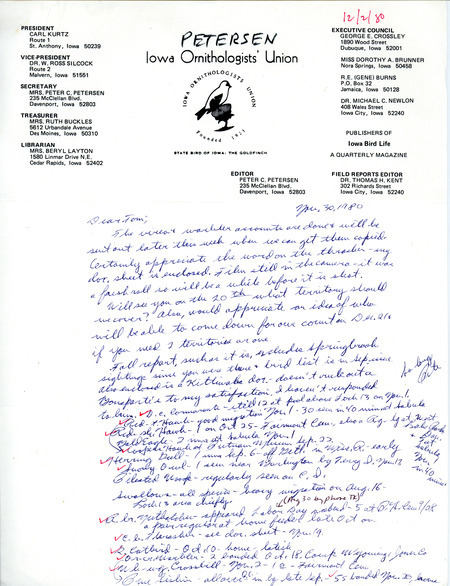 12/2/80
PETERSEN
Iowa Ornithologists' Union
PRESIDENT
CARL KURTZ
Route 1
St. Anthony, Iowa 50239
VICE-PRESIDENT
DR. W. ROSS SILCOCK
Route 2
Malvern, Iowa 51551
SECRETARY
MRS. PETER C. PETERSEN
235 McClellan Blvd.
Davenport, Iowa 52803
TREASURER
MRS. RUTH BUCKLES
5612 Urbandale Avenue
Des Moines, Iowa 50310
LIBRARIAN
MRS. BERYL LAYTON
1580 Linmar Drive N.E.
Cedar Rapids, Iowa 52402
IOWA ORNITHOLOGISTS UNION
Founded 1923
STATE BIRD OF IOWA: THE GOLDFINCH
EXECUTIVE COUNCIL
GEORGE E. CROSSLEY
1890 Wood Street
Dubuque, Iowa 52001
MISS DOROTHY A. BRUNNER
Nora Springs, Iowa 50458
R.E. (GENE) BURNS
P.O. Box 32
Jamaica, Iowa 50128
DR. MICHAEL C. NEWLON
408 Wales Street
Iowa City, Iowa 52240
PUBLISHERS OF
Iowa Bird Life
A QUARTERLY MAGAZINE
EDITOR
PETER C. PETERSEN
235 McClellan Blvd.
Davenport, Iowa 52803
FIELD REPORTS EDITOR
DR. THOMAS H. KENT
302 Richards Street
Iowa City, Iowa 52240
Nov. 30, 1980
Dear Tom;
The vireo & warbler accounts are done & will be
sent out later this week when we can get them copied.
Certainly appreciate the word on the thrasher - my
doc. sheet is enclosed. Film still in the camera - it was
a fresh roll so will be a while before it is shot.
Will see you on the 20th - what territory should
we cover? Also, would appreciate an idea of who
will be able to come down for our count on Dec. 21 &
if you need territories or one
Fall report, such as it is, excludes Springbrook
sightings since you was there & bird list is in sequence
also enclosed is a Kittiwake doc - doesn't rule out a
Bonaparte's to my satisfaction, I haven't responded
to him. D.c. Cormorants - still 12 at pool above Lock 13 on Nov. 1,
Red-t Hawk - good migration Nov. 1 - 30 seen in 40 minutes
Red-sh. Hawk - 1 on Oct 25 - Fairmont Cem.
Bald Eagle - 2 ims at Nov. 1
Sept. 22
Herring Gull - 1 imm Sep. 6 - Miss. R. early
Snowy Owl - 1 seen near Burlington by Nov. 13
Pileated Woodp - regularly seen on C. D.
Swallows - all species - heavy migration on Aug. 16 -
Lock 13 area chiefly
R. br. Nuthatches - appeared Labor Day
a pair regular at home feeder late Oct on
C. b. Thrasher - see doc. sheet - Nov. 9.
G. Catbird - Oct 20 - home - latish
2 banded Oct 18 Camp Wyoming, Jones Co
W-wing Crossbill - Nov. 2 - 1 - Fairmont Cem.
Pine Siskin - allover in by late Sep.